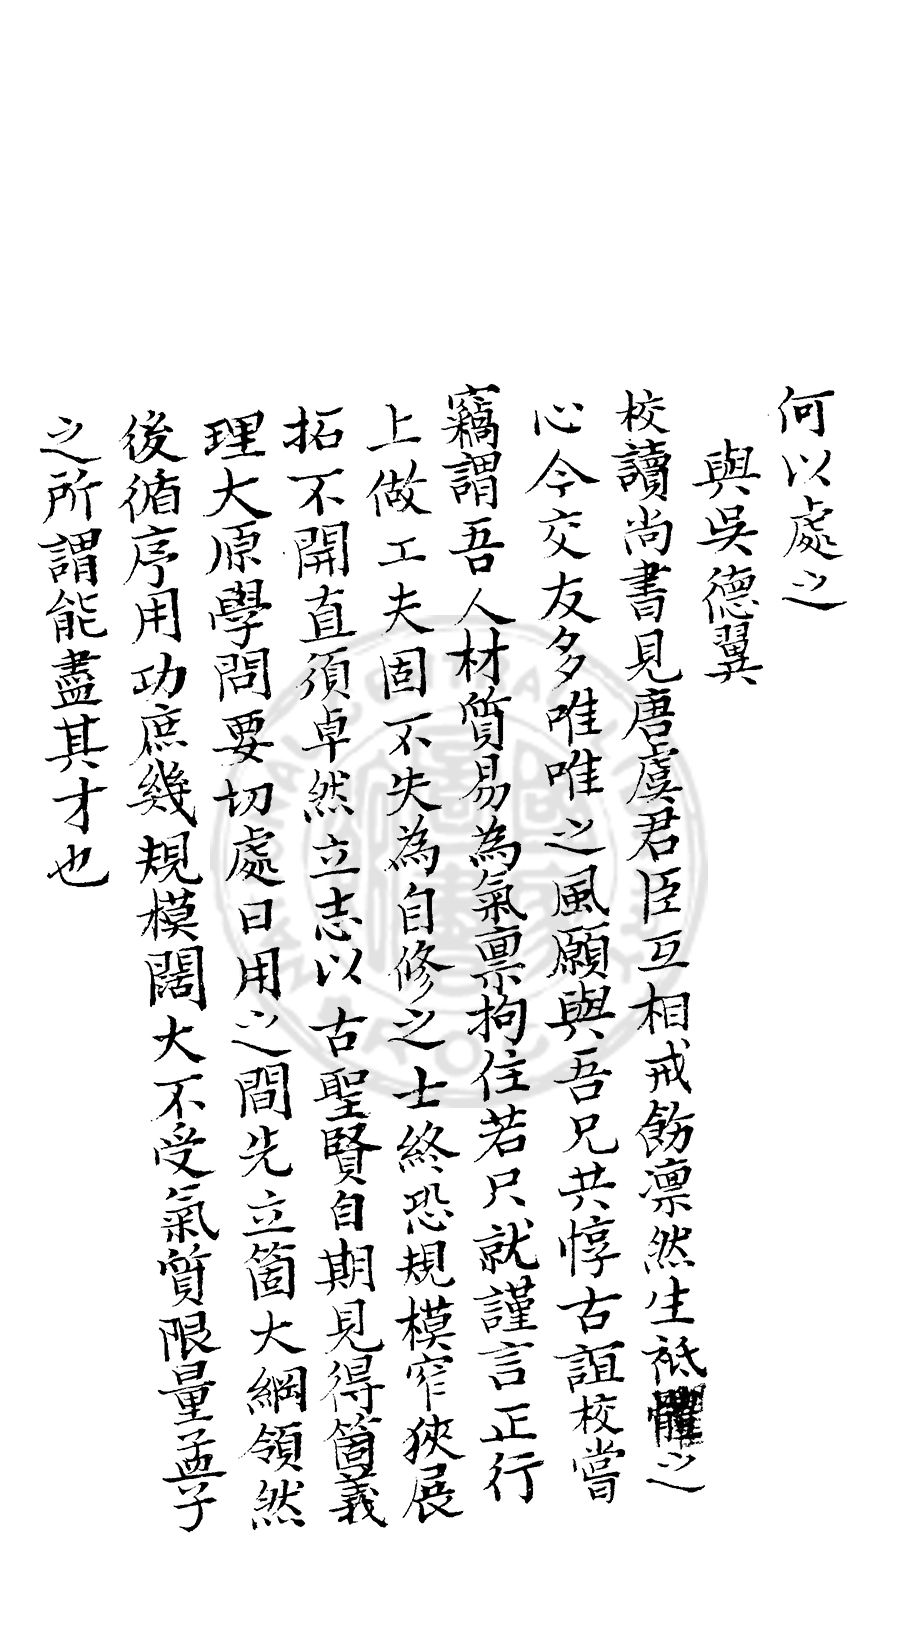 何以處之
與吳德翼
校讀尚書見唐虞君臣互相戒飭凛然生祗懼之
心今交友多唯唯之風願與吾兄共惇古誼校嘗
竊謂吾人材質易為氣禀拘住若只就謹言正行
上做工夫固不失為自修之士終恐規模窄狹展
拓不開直須卓然立志以古聖賢自期見得箇義
理大原學問要切處日用之間先立箇大綱領然
後循序用功庶幾規模闊大不受氣質限量孟子
之所謂能盡其才也